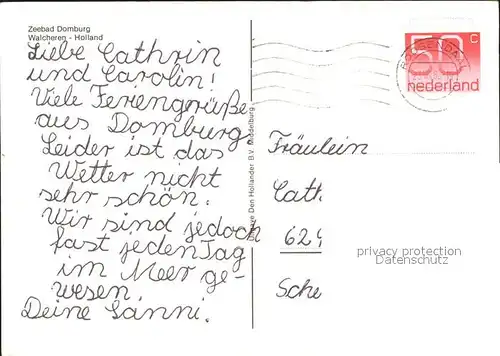 Zeebad Domburg
Walcheren - Holland
Liebe Cathrin
und Carolin!
Viele Feriengrüße
aus Domburg.
Leider ist das
Wetter nicht
sehr schön.
Wir sind jedoch
fast jeden Tag
im Meer ge-
wesen.
Deine Sanni.
Den Hollander B.V. Middelburg
ROOSENDAAL
50 c
nederland
Fräulein
Cath
629
Sche
privacy protection
Datenschutz